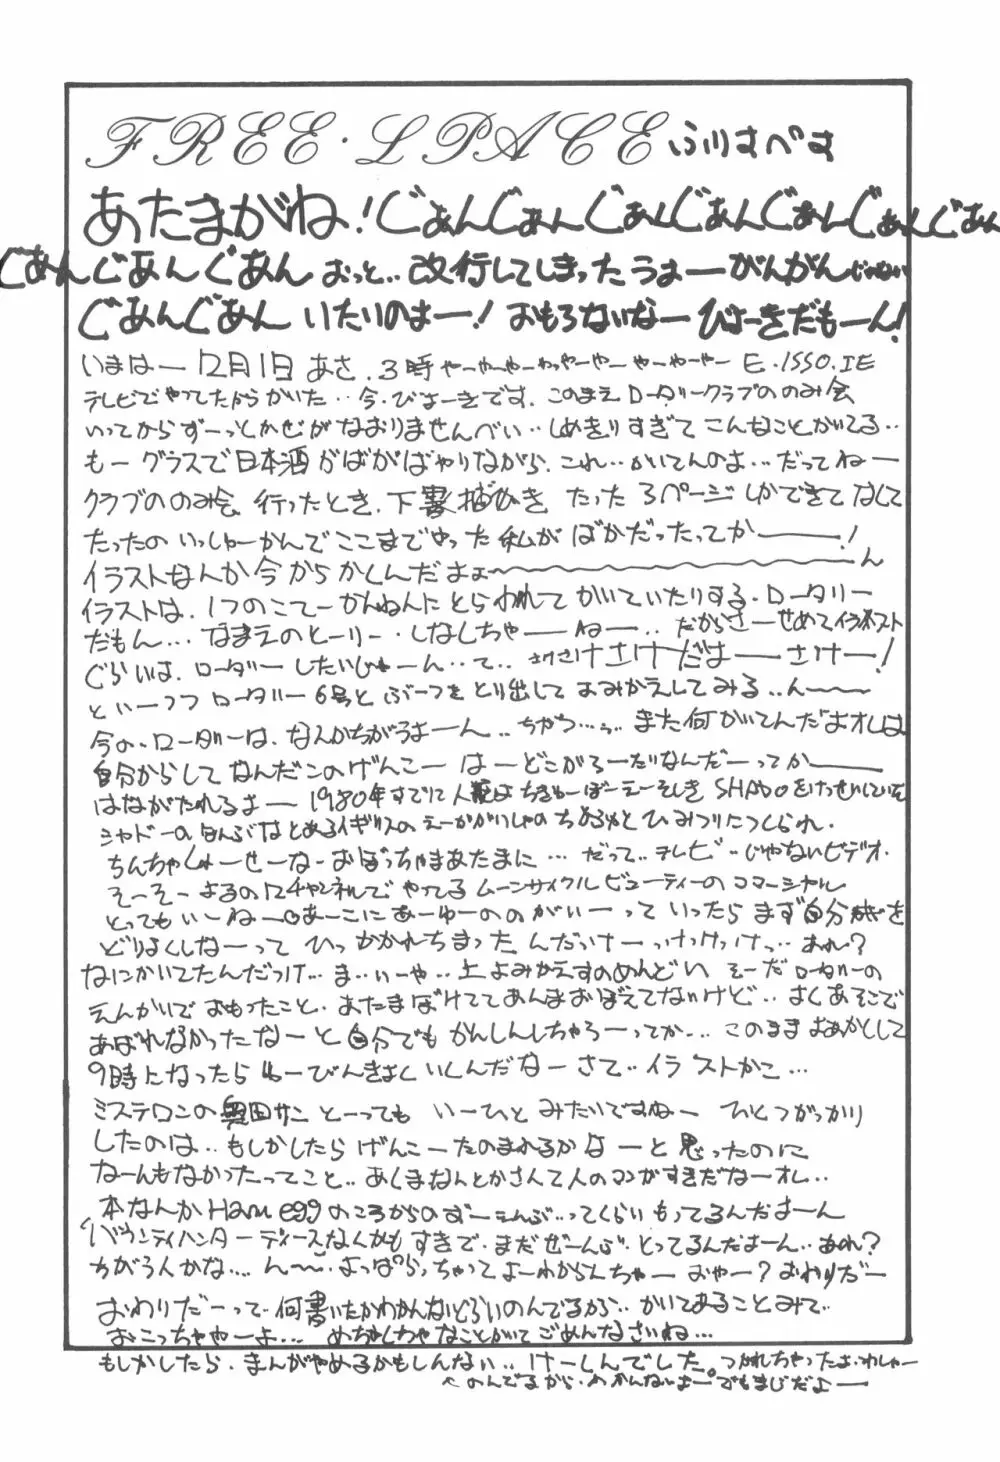 FREE・LPACE ふりすぺす
あたまがね！ぐあんぐあんぐあんぐあんぐあんぐあんぐあん
ぐあんぐあんぐあん おっと‥改行してしまった うわーがんがんじゃない
ぐあんぐあん いたいのよー！おもろないなー びょーきだもーん！
いまはー 12月1日 あさ．3時 E．ISSO．IE
テレビでやってたからかいた‥今・びょーきです．このまえ ローダークラブののみ会
いってから ずーっとかぜが なおりませんべい‥しめきりすぎて こんなことかいてる‥
もー グラスで日本酒 がばがばやりながら．これ‥かいてんのよ…だってねー
クラブののみ会 行ったとき．下書 たった3ページしかできてなくて
たったの いっしゅーかんでここまでやった 私が ばかだったってかー！
イラストなんか今からかくんだよぉ〜ん
イラストは．1つのこてーかんねんにとらわれて かいていたりする・ローダリー
だもん… なまえのとーりー・しなしちゃーねー‥ だからさーせめてイラスト
ぐらいは．ローダー したいじゃーん‥て‥ さけさけさけだよー さけー！
といーつつ ローダー6号と ぶーつをとり出して よみかえしてみる‥ん〜
今の・ローダーは．なんかちがうよーん‥ちがつ… また何かいてんだよオレは
自分からして なんだこのげんこー はーどこがろーだりなんだーってかー
はながたれるよー 1980年すでに人類は ちきゅーぼーえーそしき SHADOをけっせいしていた
シャドーのほんぶは とあるイギリスの えーがかいしゃの ちかふかと ひみつりにつくられ．
ちんちゃしょーせーなーおぼっちゃまあたまに… だって‥テレビ‥じゃないビデオ．
そーそー よるの12チャンネルで やってる ムーンサイクルビューティーの コマーシャル
とってもいーねー あーこに あーゆーののがいーって いったら まず自分 を
どりょくしなーって ひっかかれちまった んだっけーっけっけっけっ‥あれ？
なにかいてたんだっけ… ま‥いーや‥上 よみかえすのめんどい そーだ ローダーの
えんかいで おもったこと・あたまぼけてて あんまおぼえてないけど‥よくあそこで
あばれなかったなーと 自分でも かんしんしちゃろーってか… このまま よあかして
9時になったら ゆーびんきょくいくんだなー さて‥イラストかこ…
ミステロンの奥田サン とーっても いーひと みたいですねー ひとつがっかり
したのは‥もしかしたら げんこーたのまれるかなーと 思ったのに
なーんもなかったってこと‥あくまなんとかさんて人のマンガすきだなーオレ‥
本なんか Ham eggのころからの ずーえんぶ‥ってくらい もってるんだよーん
バウンティハンターディースなんかも すきで・まだぜーんぶ・とってるんだよーん‥あれ？
ちがう人かな… ん〜・よっぱらっちゃって よーわからんちゃー おやー？おわりだー
おわりだーって・何書いたかわかんないぐらいのんでるから‥かいてあることみて‥
おこっちゃやーよ… めちゃくちゃなことかいて ごめんなさいね…
もしかしたら・まんがやめるかもしんない‥けーしんでした。つかれちゃったよ・わしゃー
へのんでるから・わかんないよー でもまじだよー